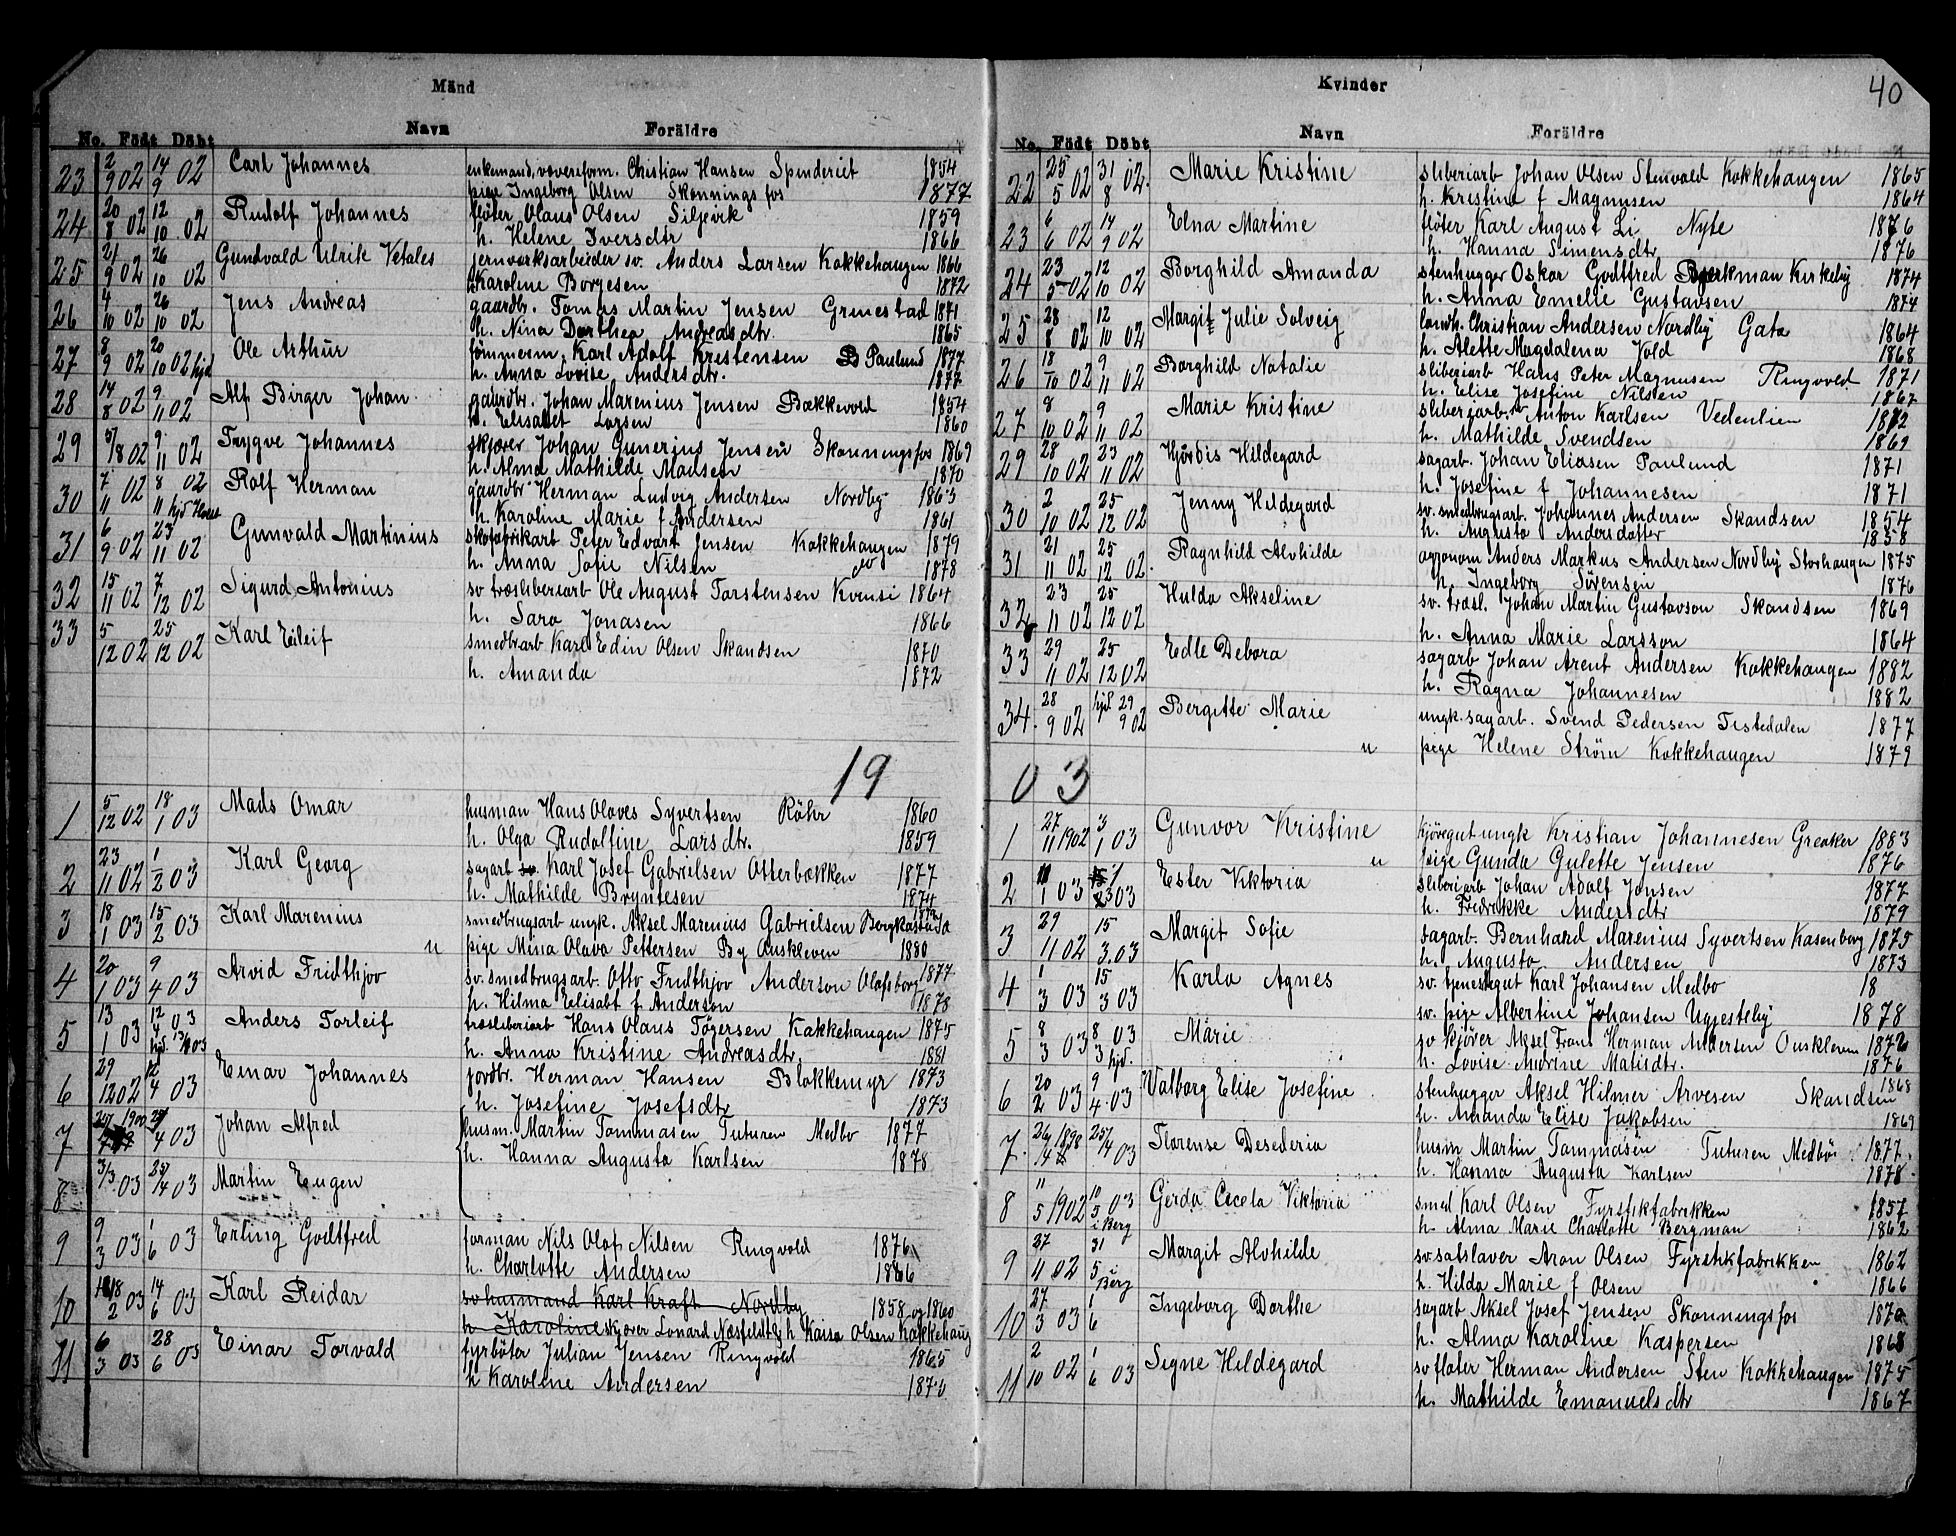 40
Mänd
No. Födt Döbt Navn Foräldre
23 2/9 02 14/9 02 Carl Johannes enkemand, væverform. Christian Hansen Spinderiet 1854
pige Ingeborg Olsen Skonningsfos 1877
24 20/8 02 12/10 02 Rudolf Johannes fløter Olaus Olsen Siljevik 1859
h. Helene Iversdtr 1866
25 21/9 02 26/10 02 Gundvald Ulrik Vetales jernverksarbeider sv. Anders Larsen Kokkehaugen 1866
h. Karoline Borgesen 1872
26 4/10 02 26/10 02 Jens Andreas gaardbr. Tomas Martin Jensen Grinestad 1871
h. Nina Dorthea Andreasdtr. 1865
27 8/9 02 20/10 02 hjd Ole Arthur tømmerm. Karl Adolf Kristensen B Paulund 1877
h. Anna Lovise Andersdtr. 1877
28 14/8 02 9/11 02 Alf Birger Johan gaardbr. Johan Marenius Jensen Bækkevold 1854
h. Elisabet Larsen 1860
29 5/8 02 9/11 02 Trygve Johannes skjører Johan Gunerius Jensen Skonningsfos 1869
h. Alma Mathilde Madsen 1870
30 7/11 02 8/11 02 hjd Rolf Herman gaardbr Herman Ludvig Andersen Nordby 1863
h. Karoline Marie f Andersen 1861
31 6/9 02 23/11 02 Gunvald Martinius skofabrikarb Peter Edvart Jensen Kokkehaugen 1879
h. Anna Sofie Nilsen do 1878
32 15/11 02 7/12 02 Sigurd Antonius sv træsliberiarb Ole August Torstensen Kvensi 1864
h. Sara Jonasen 1866
33 5/12 02 25/12 02 Karl Eileif smedbrarb Karl Edin Olsen Skandsen 1870
h. Amanda 1872
19
1 5/12 02 18/1 03 Mads Omar husman Hans Olaves Syvertsen Röhr 1860
h. Olga Rudolfine Larsdtr. 1859
2 23/11 02 1/2 03 Karl Georg sagarb sv. Karl Josef Gabrielsen Otterbækken 1877
h. Mathilde Bryntesen 1874
3 18/1 03 15/2 03 Karl Marenius smedbrugsarb ungk. Aksel Marenius Gabrielsen Borgkastada
u pige Mina Olava Pettersen By Ouskleven 1880
4 20/1 03 9/4 03 Arvid Fridthjov sv. smedbrugsarb. Otto Fridthjov Anderson Olafsborg 1877
h. Hilma Elisabt f. Anderson 1878
5 13/1 03 12/4 03 Anders Torleif træsliberiarb Hans Olaus Tøgersen Kakkehaugen 1875
h. Anna Kristine Andreasdtr. 1881
6 29/12 02 12/4 03 Einar Johannes jordbr. Herman Hansen Blokkemyr 1873
h. Josefine Josefsdtr 1873
7 1900 4 03 Johan Alfred husm. Martin Tommasen Tuturen Medbo 1877
h. Hanna Augusta Karlsen 1878
8 3/3 03 25/4 03 Martin Eugen
9 9/3 03 1/6 03 Erling Godtfred forman Nils Olof Nilsen Ringvold 1876
h. Charlotte Andersen 1866
10 18/2 03 14/6 03 Karl Reidar sv husmand Karl Kraft Nordby 1858 og 1860
h. Karoline skjører Lonard Næsfeldt og h Kaisa Olsen Kokkehaug
11 6/3 03 28/6 03 Einar Torvald fyrböter Julian Jensen Ringvold 1865
h Karoline Andersen 1870
Kvinder
No. Födt Döbt Navn Foräldre
22 25/5 02 31/8 02. Marie Kristine sliberiarb Johan Olsen Stenvald Kokkehaugen 1865
h. Kristine f Magnusen 1864
23 6/6 02 14/9 02 Elna Martine fløter Karl August Li Nyte 1876
h. Hanna Simensdtr 1876
24 23/5 02 12/10 02 Borghild Amanda stenhugger Oskar Godtfred Bjerkman Kirkeby 1874
h. Anna Emelie Gustavsen 1874
25 28/8 02 12/10 02 Margit Julie Solveig landh. Christian Andersen Nordby Gata 1864
h. Alette Magdalena Vold 1868
26 18/10 02 9/11 02 Borghild Natalie sliberiarb Hans Peter Magnusen Ringvold 1871
h. Elise Josefine Nilsen 1867
27 8/10 02 9/11 02 Marie Kristine sliberiarb. Anton Karlsen Vedenlien 1872
h. Mathilde Svendsen 1869
29 28/10 02 23/11 02 Hjördis Hildegard sagarb. Johan Eliasen Paulund 1871
h. Josefine f Johannesen 1871
30 2/10 02 25/12 02 Jenny Hildegard sv. smedbrugsarb. Johannes Andersen Skandsen 1854
h. Augusta Andersdatter 1858
31 21/11 02 25/12 02. Ragnhild Alvhilde agronom Anders Markus Andersen Nordby Storhaugen 1875
h. Ingeborg Sörensen 1876
32 23/11 02 25/12 02 Hulda Akseline sv. træsl. Johan Martin Gustavson Skandsen 1869
h. Anna Marie Larsson 1864
33 29/11 02 25/12 02 Edle Debora sagarb Johan Arent Andersen Kokkehaugen 1882
h. Ragna Johannesen 1882
34. 28/9 02 hjd. 29/9 02 Bergitte Marie ungk. sagarb. Svend Pedersen Tistedalen 1877
u pige Helene Strøm Kokkehaugen 1879
03
1 27/11 1902 3/1 03 Gunvor Kristine kjöregut ungk Kristian Johannesen Greaker 1883
u pige Gunda Gulette Jensen 1876
2 1 03 03 Ester Viktoria sliberiarb Johan Adolf Jonsen 1877
h. Fredrikke Andersdtr 1879
3 29/11 02 15/3. 03 Margit Sofie sagarb. Bernhard Marenius Syvertsen Kasenborg 1875
h. Augusta Andersen 1873
4 1/3 03 15/3 03 Karla Agnes sv. tjenestegut Karl Johansen Medbo 18
sv. pige Albertine Johansen Ugjesteby 1878
5 8/3 03 8/3 03 hjd. Marie sv kjører Aksel Frans Herman Andersen Ouskleven 1872
h. Lovise Andrine Matisdtr. 1876
6 20/2 03 9/4 03 Valborg Elise Josefine stenhugger Aksel Hilmer Arvesen Skandsen 1868
h. Amanda Elise Jakobsen 1869
7. 26 1898 25/4 03 Florense Desederia husm Martin Tommasen Tuturen Medbö 1877.
h. Hanna Augusta Karlsen 1878.
8 11/5 1902 10/5 03 i Berg Gerda Cecela Viktoria smed Karl Olsen Fyrstikfabrikken 1857
h. Alma Marie Charlotte Bergman 1862
9 27/11 02 31/5 Berg Margit Alvhilde sv. satslaver Aron Olsen Fyrstikfabrikken 1862
h. Hilda Marie f Olsen 1866
10 27/3 03 1/6 Ingeborg Dorthe sagarb Aksel Josef Jensen Skonningsfos 1870
h. Alma Karoline Kaspersen 1868
11 2/10 02 1/6 03 Signe Hildegard sv fløter Herman Andersen Sten Kokkehaugen 1875
h. Mathilde Emanuelsdtr 1867